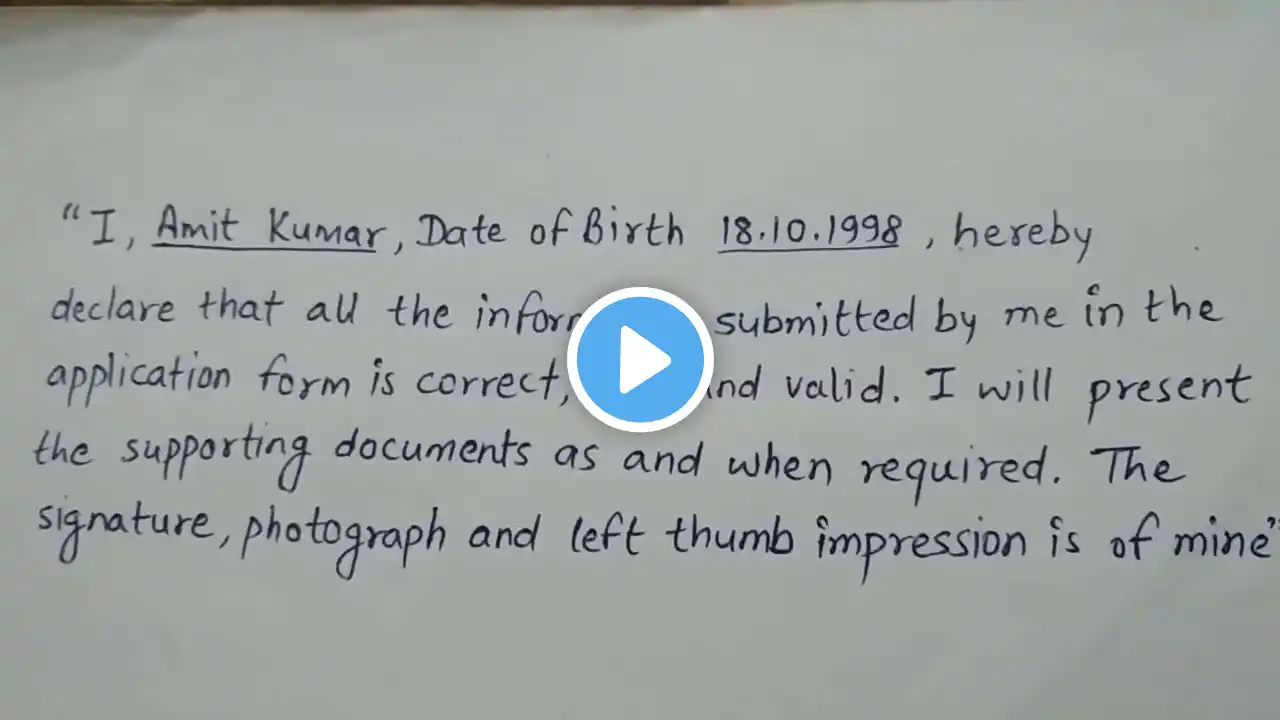 “I, Amit Kumar, Date of Birth 18.10.1998, hereby
declare that all the submitted by me in the
application form is correct, valid. I will present
the supporting documents as and when required. The
signature, photograph and left thumb impression is of mine”